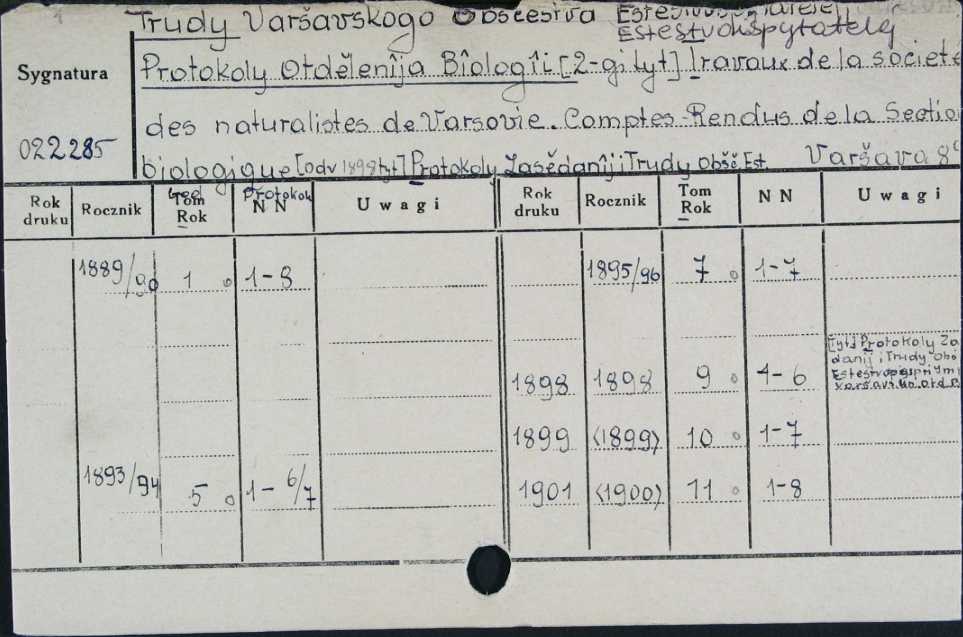 Trudy Varšavskogo Obščestva
Estestvoispytatelej
Sygnatura
Protokoly Otdělenîja Bîologîi [2-gi tyt] Travaux de la societe
des naturalistes de Varsovie. Comptes-Rendus de la Sectio
022285
biologique [odv 1898 tyt] Protokoly Zasědanîj i Trudy Obšč Est. Varšava 8°
Rok druku Rocznik God Tom Rok Protokoly NN Uwagi Rok druku Rocznik Tom Rok NN Uwagi
1889/90 1 1-8 1895/96 7 1-7
Tyt] Protokoly Za
danij i Trudy Obš
1898 1898 9 1-6
1899 (1899) 10 1-7
1893/94 5 1-6/7 1901 (1900) 11 1-8